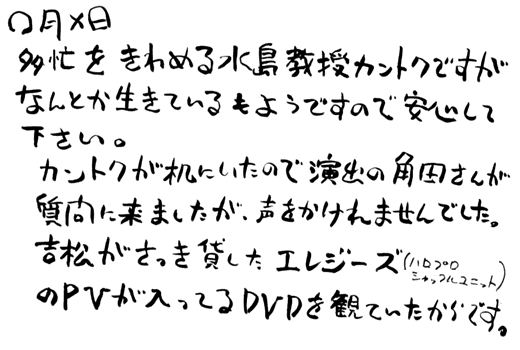 ○月×日
多忙をきわめる水島教授カントクですが
なんとか生きているもようですので安心して
下さい。
カントクが机にいたので演出の角田さんが
質問に来ましたが、声をかけれませんでした。
吉松がさっき貸したエレジーズ(ハロプロシャッフルユニット)
のPVが入ってるDVDを観ていたからです。